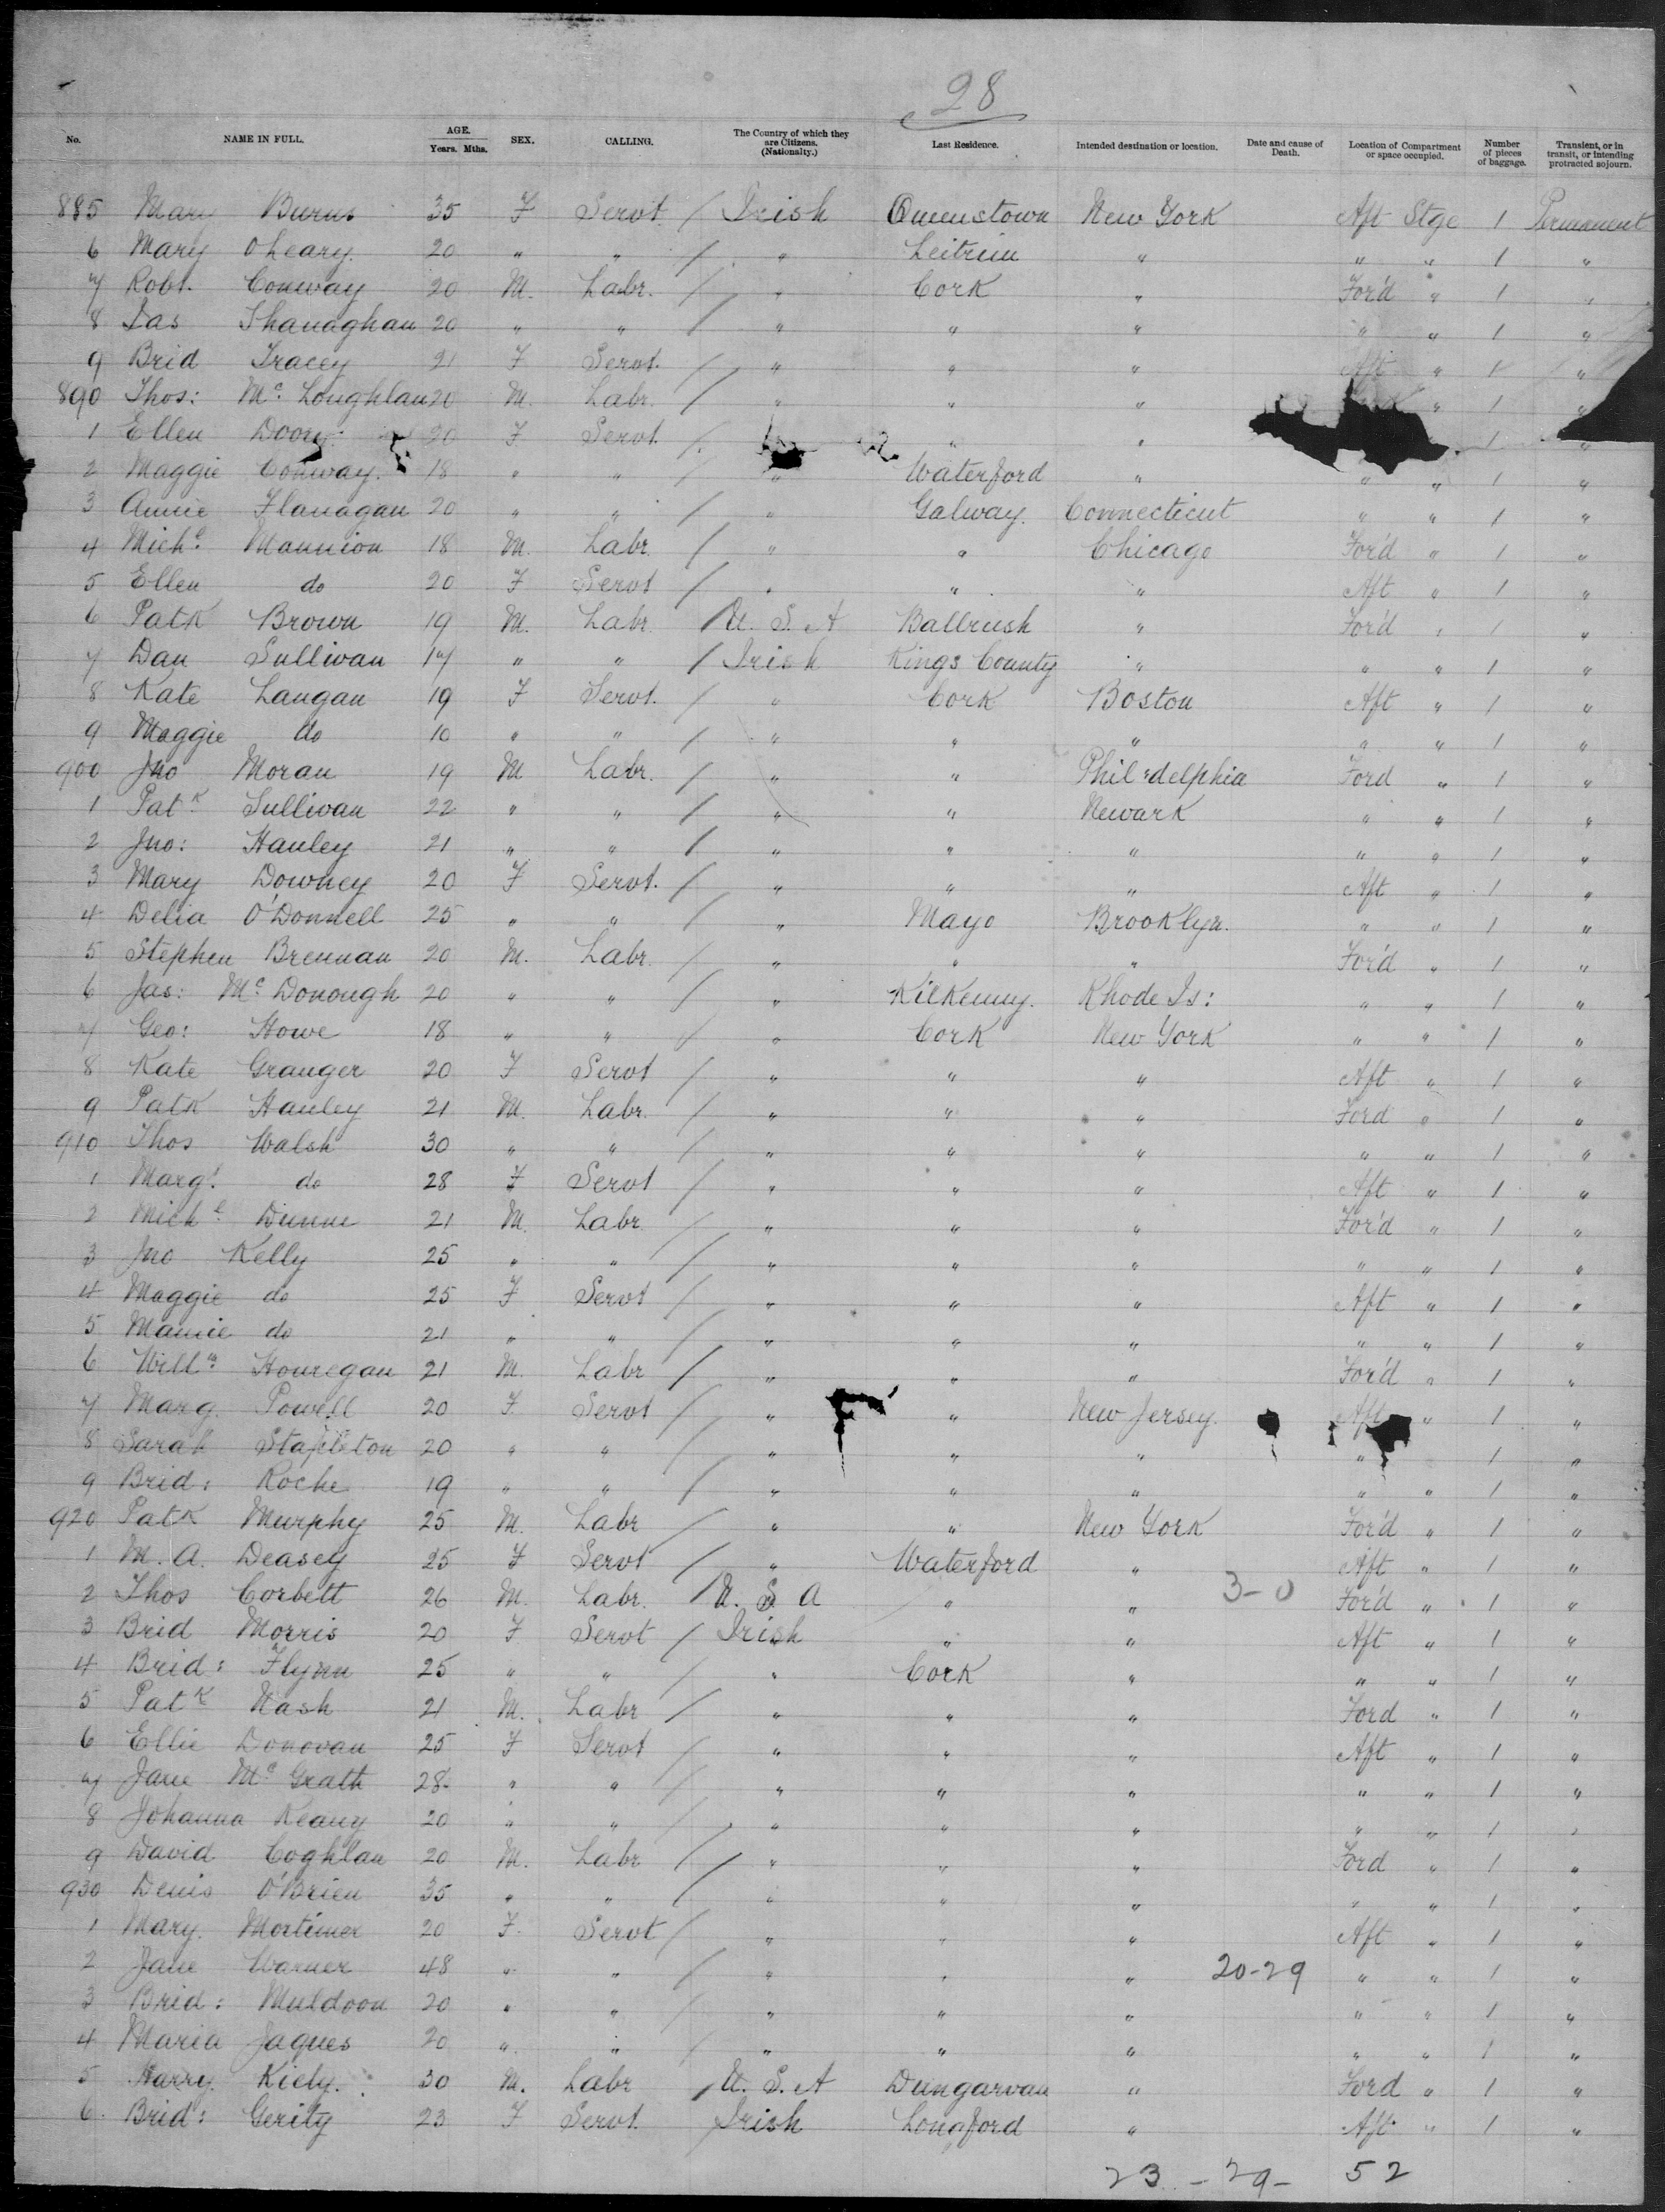 28
No. NAME IN FULL. AGE. Years. Mths. SEX. CALLING. The Country of which they are Citizens. (Nationalty.) Last Residence. Intended destination or location. Date and cause of Death. Location of Compartment or space occupied. Number of pieces of baggage. Transient, or in transit, or intending protracted sojourn.
885 Mary Burns 35 F Servt / Irish Queenstown New York Aft Stge 1 Permanent
6 Mary O'Leary 20 " " / " Leitrim " " " 1 "
7 Robt. Conway 20 M. Labr. / " Cork " For'd " 1 "
8 Jas Shanaghan 20 " " / " " " " " 1 "
9 Brid Tracey 21 F Servt. / " " " Aft " 1 "
890 Thos: Mc Loughlan 20 M. Labr. / " " " " 1 "
1 Ellen 20 F Servt. / " " 1 "
2 Maggie Conway. 18 " " / " Waterford " " " 1 "
3 Annie Flanagan 20 " " / " Galway. Connecticut " " 1 "
4 Michl Mannion 18 M. Labr. / " " Chicago For'd " 1 "
5 Ellen do 20 F Servt / " " " Aft " 1 "
6 Patk Brown 19 M. Labr. / U. S. A Ballrush " For'd " 1 "
7 Dan Sullivan 17 " " / Irish Kings County " " " 1 "
8 Kate Langan 19 F Servt. / " Cork Boston Aft " 1 "
9 Maggie do 10 " " / " " " " " 1 "
900 Jno Moran 19 M Labr. / " " Philadelphia Ford " 1 "
1 Patk Sullivan 22 " " / " " Newark " " 1 "
2 Jno: Hanley 21 " " / " " " " " 1 "
3 Mary Downey 20 F Servt. / " " " Aft " 1 "
4 Delia O'Donnell 25 " " / " Mayo Brooklyn. " " 1 "
5 Stephen Brennan 20 M. Labr. / " " " For'd " 1 "
6 Jas: Mc Donough 20 " " / " Kilkenny. Rhode Is: " " 1 "
7 Geo: Howe 18 " " / " Cork New York " " 1 "
8 Kate Granger 20 F Servt / " " " Aft " 1 "
9 Patk Hanley 21 M. Labr. / " " " Ford " 1 "
910 Thos Walsh 30 " " / " " " " " 1 "
1 Margt do 28 F Servt / " " " Aft " 1 "
2 Michl Dunne 21 M. Labr / " " " For'd " 1 "
3 Jno Kelly 25 " " / " " " " " 1 "
4 Maggie do 25 F Servt / " " " Aft " 1 "
5 Mamie do 21 " " / " " " " " 1 "
6 Willm Houregan 21 M. Labr / " " " For'd " 1 "
7 Marg. Powell 20 F Servt / " " New Jersey. Aft " 1 "
8 Sarah Stapleton 20 " " / " " " " 1 "
9 Brid: Roche 19 " " / " " " " " 1 "
920 Patk Murphy 25 M. Labr / " " New York For'd " 1 "
1 M. A. Deasey 25 F Servt / " Waterford " Aft " 1 "
2 Thos Corbett 26 M. Labr. / U. S. A " " 3-0 For'd " 1 "
3 Brid Morris 20 F Servt / Irish " " Aft " 1 "
4 Brid: Flynn 25 " " / " Cork " " " 1 "
5 Patk Nash 21 M. Labr / " " " Ford " 1 "
6 Ellie Donovan 25 F Servt / " " " Aft " 1 "
7 Jane Mc Grath 28 " " / " " " " " 1 "
8 Johanna Keany 20 " " / " " " " " 1 "
9 David Coghlan 20 M. Labr / " " " Ford " 1 "
930 Denis O'Brien 35 " " / " " " " " 1 "
1 Mary. Mortimer 20 F. Servt / " " " Aft " 1 "
2 Jane Warner 48 " " / " " " 20-29 " " 1 "
3 Brid: Muldoon 20 " " / " " " " " 1 "
4 Maria Jaques 20 " " / " " " " " 1 "
5 Harry. Kiely. 30 M. Labr / U. S. A Dungarvan " Ford " 1 "
6 Brid: Gerity 23 F Servt. Irish Longford " Aft " 1 "
23 - 29 - 52